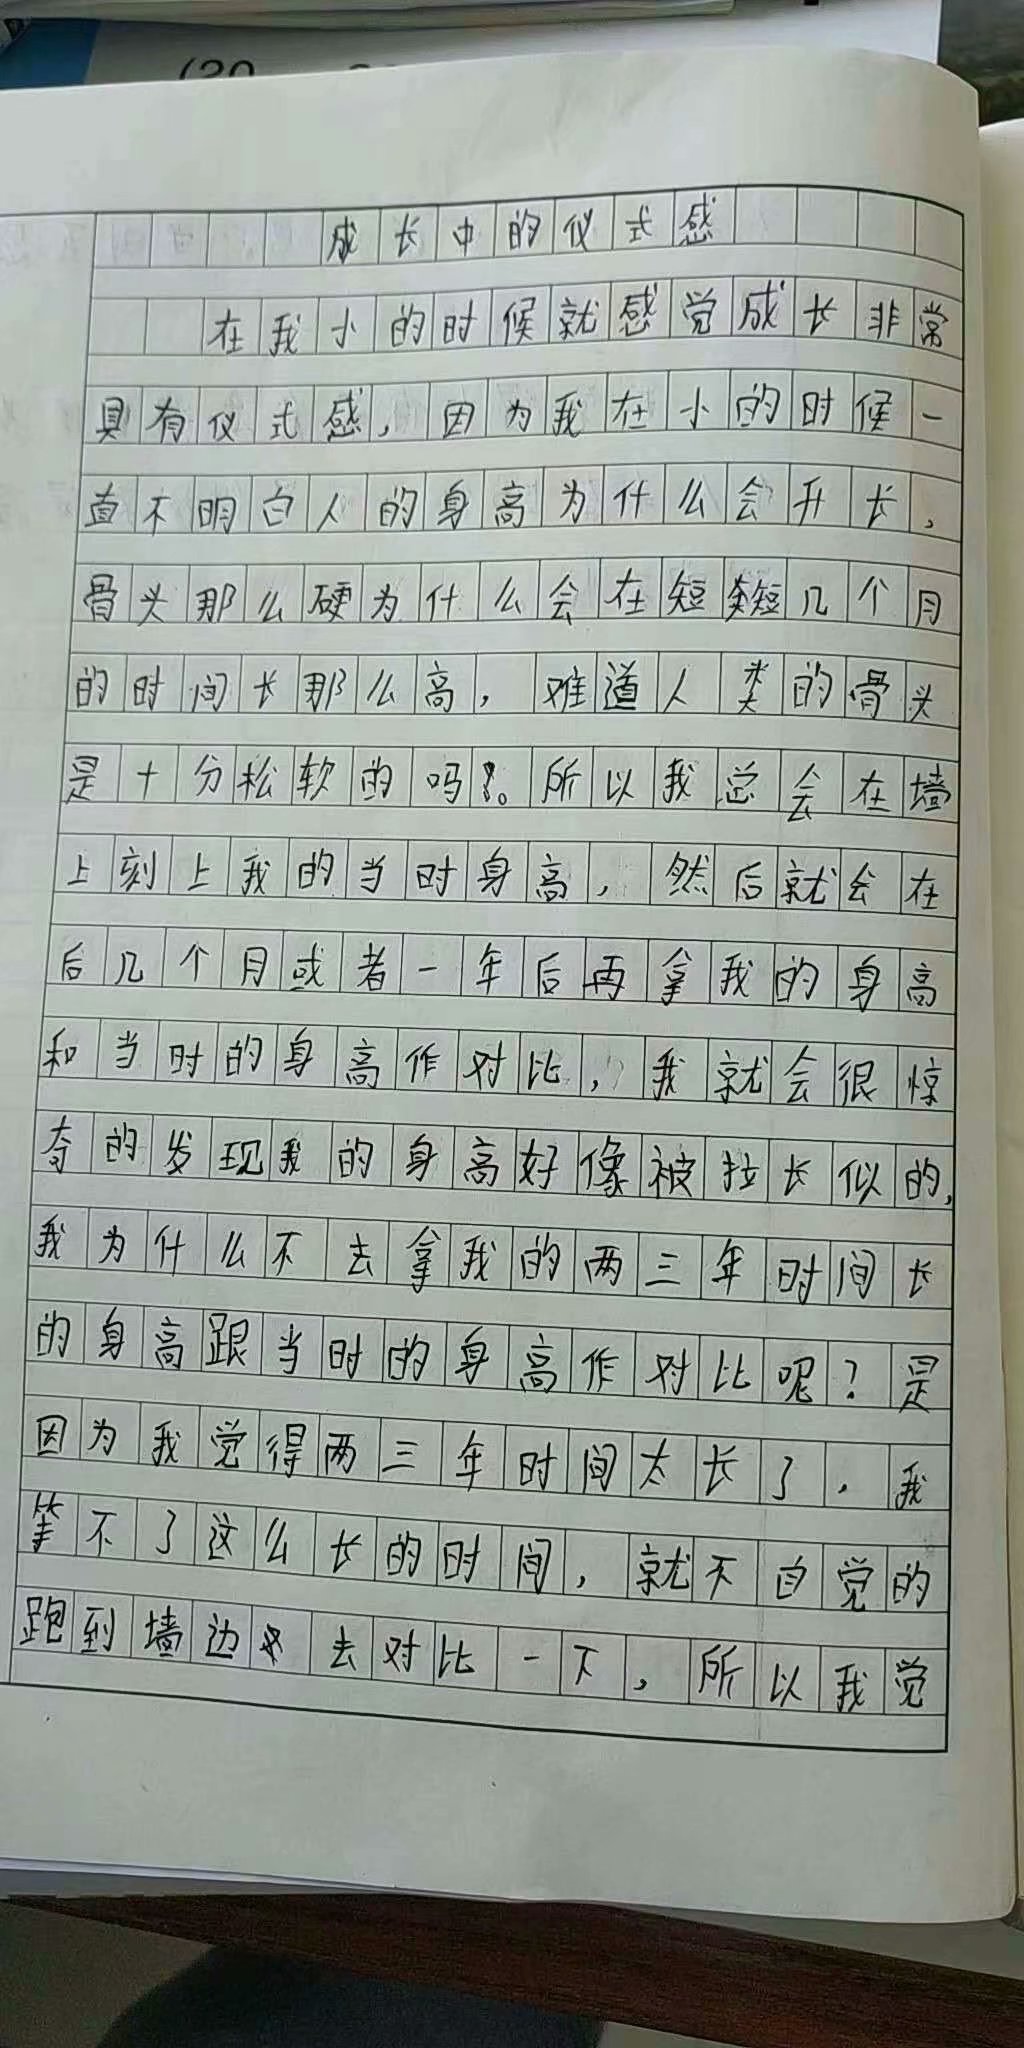 成长中的仪式感
在我小的时候就感觉成长非常
具有仪式感，因为我在小的时候一
直不明白人的身高为什么会升长，
骨头那么硬为什么会在短短几个月
的时间长那么高，难道人类的骨头
是十分松软的吗？。所以我总会在墙
上刻上我的当时身高，然后就会在
后几个月或者一年后再拿我的身高
和当时的身高作对比，我就会很惊
奇的发现我的身高好像被拉长似的，
我为什么不去拿我的两三年时间长
的身高跟当时的身高作对比呢？是
因为我觉得两三年时间太长了，我
等不了这么长的时间，就不自觉的
跑到墙边去对比一下，所以我觉